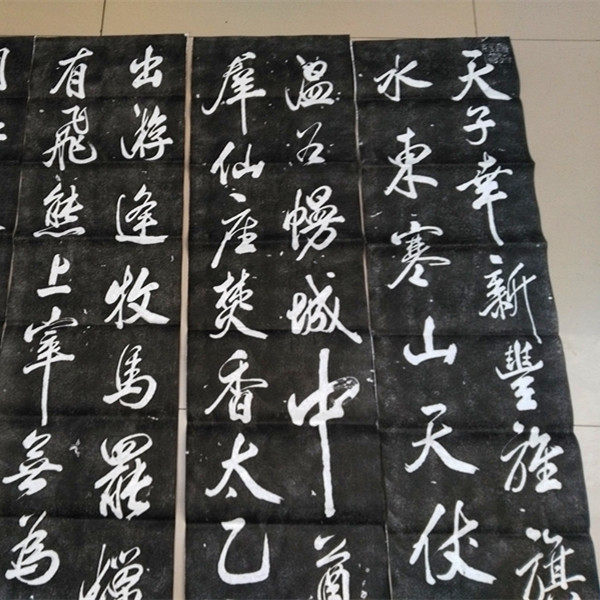 天子幸新豐旌旗
水東寒山天仗
温谷幔城中
羣仙座焚香太乙
出游逢牧馬罷獵
有飛熊上宰無為